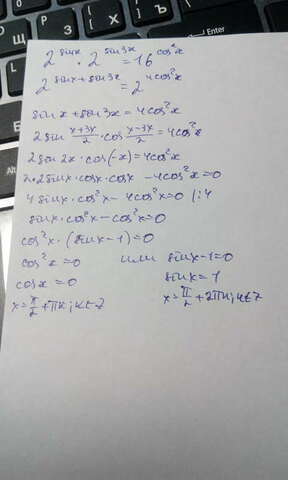 Щ З
2^{sin x} · 2^{sin 3x} = 16^{cos²x}
2^{sin x + sin 3x} = 2^{4cos²x}
sin x + sin 3x = 4cos²x
2 sin \frac{x+3x}{2} · cos \frac{x-3x}{2} = 4cos²x
2 sin 2x · cos(-x) = 4cos²x
2·2 sin x · cos x · cos x - 4cos²x = 0
4 sin x · cos²x - 4cos²x = 0 | :4
sin x · cos²x - cos²x = 0
cos²x · (sin x - 1) = 0
cos²x = 0 или sin x - 1 = 0
cos x = 0 sin x = 1
x = \frac{π}{2} + πk; k∈Z x = \frac{π}{2} + 2πk; k∈Z